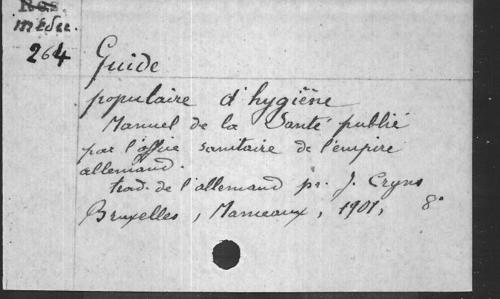 Res.
Médec.
264
Guide
populaire d'hygiène
Manuel de la Santé publié
par l'offie sanitaire de l'empire
allemand.
trad. de l'allemand pr. J. Cryns
Bruxelles, Mameaux, 1901, 8°